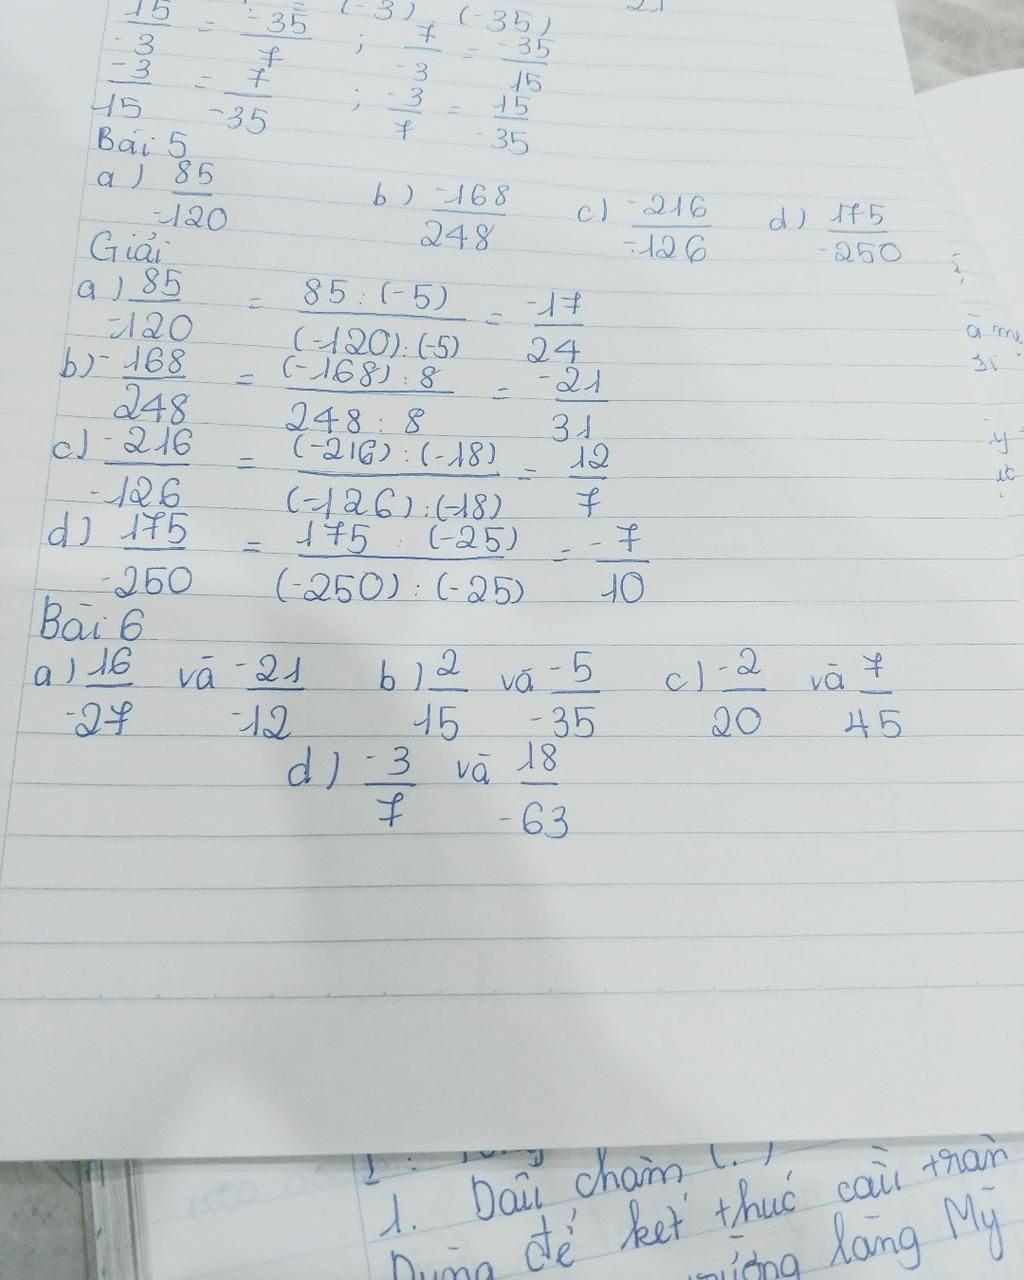 (-3) . (-35) 21
15/-3 = -35/7 ; 7/-3 = -35/15
-3/15 = 7/-35 ; -3/7 = 15/-35
Bài 5
a) 85/-120 b) -168/248 c) -216/-126 d) 175/-250
Giải
a) 85/-120 = 85 : (-5)/(-120) : (-5) = -17/24
b) -168/248 = (-168) : 8/248 : 8 = -21/31
c) -216/-126 = (-216) : (-18)/(-126) : (-18) = 12/7
d) 175/-250 = 175 : (-25)/(-250) : (-25) = -7/10
Bài 6
a) 16/-27 và -21/-12 b) 2/15 và -5/-35 c) -2/20 và 7/45
d) -3/7 và 18/-63
1. Dấu chấm (.)
Dùng để kết thúc câu trần
làng Mỹ